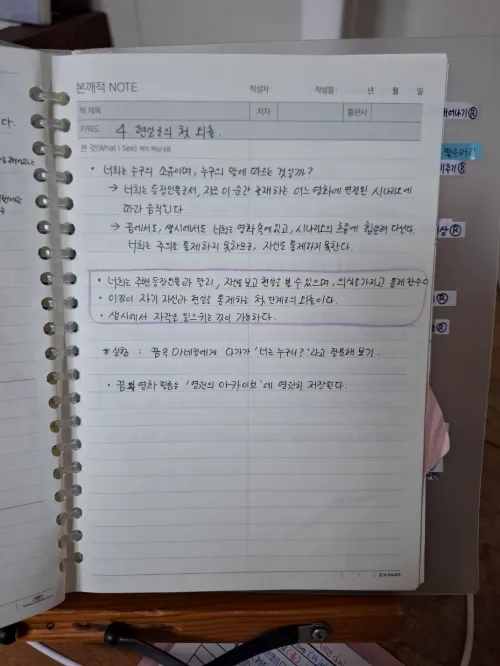 다.
본깨적 NOTE 작성자 : 작성일 : 년 월 일
책 제목 저자 출판사
키워드 4. 현실로의 첫 외출.
본 것(What I See)
• 너희는 누구의 소유이며, 누구의 맘에 따르는 것일까?
→ 너희는 등장인물로서, 지금 이 순간 존재하는 어느 영화에 연결된 시나리오에
따라 움직인다.
→ 꿈에서도, 생시에서도 너희는 영화 속에 있고, 시나리오의 흐름에 휩쓸려 다닌다.
너희는 주의를 통제하지 못하므로, 자신도 통제하지 못한다.
• 너희는 주변 등장인물과 달리, 자신을 보고 현실을 볼 수 있으며, 의식을 가지고 통제할 수
• 이것이 자기 자신과 현실을 통제하는 첫 단계로의 외출이다.
• 생시에서 자각을 일으키는 것이 가능하다.
* 실험 : 꿈의 마네킹에게 다가가 '너는 누구니?' 라고 질문해 보기.
• 꿈과 영화 필름은 '영원의 아카이브'에 영원히 저장된다.